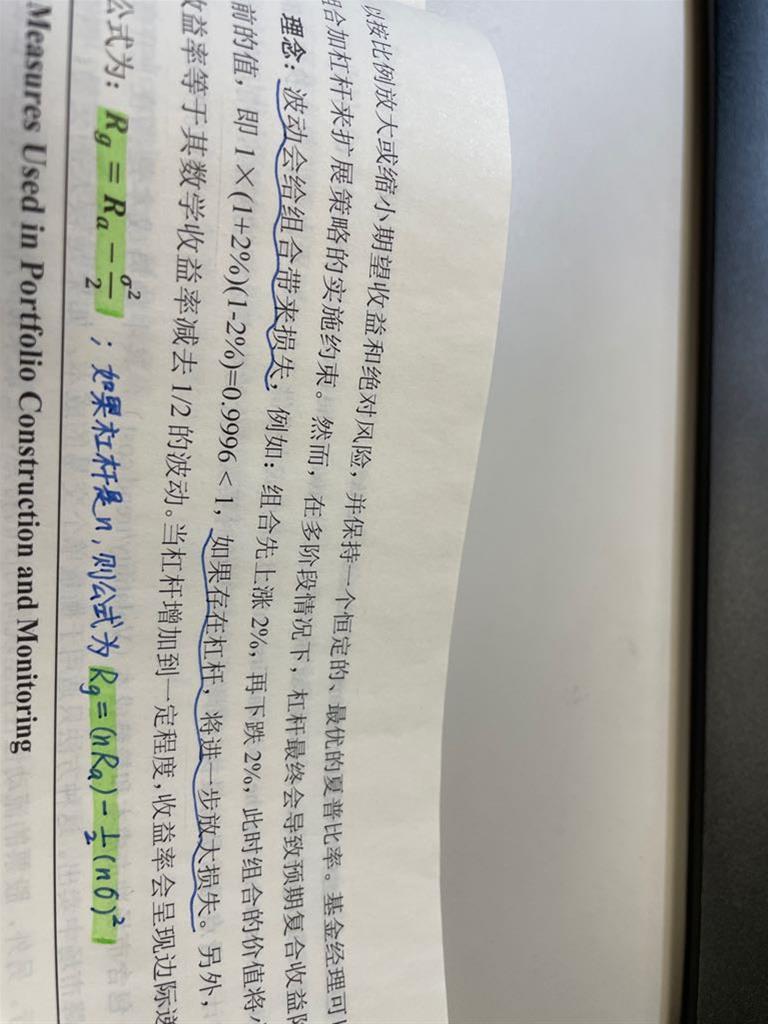 以按比例放大或缩小期望收益和绝对风险，并保持一个恒定的、最优的夏普比率。基金经理可
合加杠杆来扩展策略的实施约束。然而，在多阶段情况下，杠杆最终会导致预期复合收益
理念：波动会给组合带来损失，例如：组合先上涨 2%，再下跌 2%，此时组合的价值将
前的值，即 1×(1+2%)(1-2%)=0.9996 < 1，如果存在杠杆，将进一步放大损失。另外，
收益率等于其数学收益率减去 1/2 的波动。当杠杆增加到一定程度，收益率会呈现边际递
公式为：Rg = Ra − σ²/2；如果杠杆是n，则公式为 Rg=(nRa)−½(nσ)²
Measures Used in Portfolio Construction and Monitoring